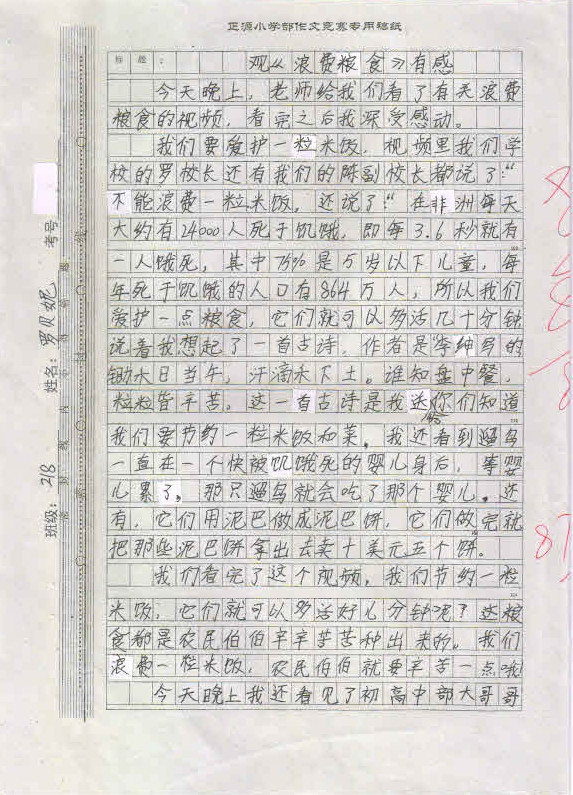 正源小学部作文竞赛专用稿纸
标题：
观《浪费粮食》有感
今天晚上，老师给我们看了有关浪费
粮食的视频，看完之后我深受感动。
我们要爱护一粒米饭，视频里我们学
校的罗校长还有我们的陈副校长都说了：“
不能浪费一粒米饭，还说了：“在非洲每天
大约有24000人死于饥饿，即每3.6秒就有
一人饿死，其中75%是5岁以下儿童，每
年死于饥饿的人口有864万人，所以我们
爱护一点粮食，它们就可以多活几十分钟
说着我想起了一首古诗，作者是李绅写的
锄禾日当午，汗滴禾下土。谁知盘中餐，
粒粒皆辛苦。这一首古诗是我送你们知道
我们要节约一粒米饭和菜。我还看到遛鸟
一直在一个快被饥饿死的婴儿身后，等婴
儿累了，那只遛鸟就会吃了那个婴儿。还
有，它们用泥巴做成泥巴饼，它们做完就
把那些泥巴饼拿出去卖十美元五个饼。
我们看完了这个视频，我们节约一粒
米饭，它们就可以多活好几分钟呢？这粮
食都是农民伯伯辛辛苦苦种出来的。我们
浪费一粒米饭，农民伯伯就要辛苦一点哦
今天晚上我还看见了初高中部大哥哥
班级：218 姓名：罗贝妮 考号
密封线内不得答题
87